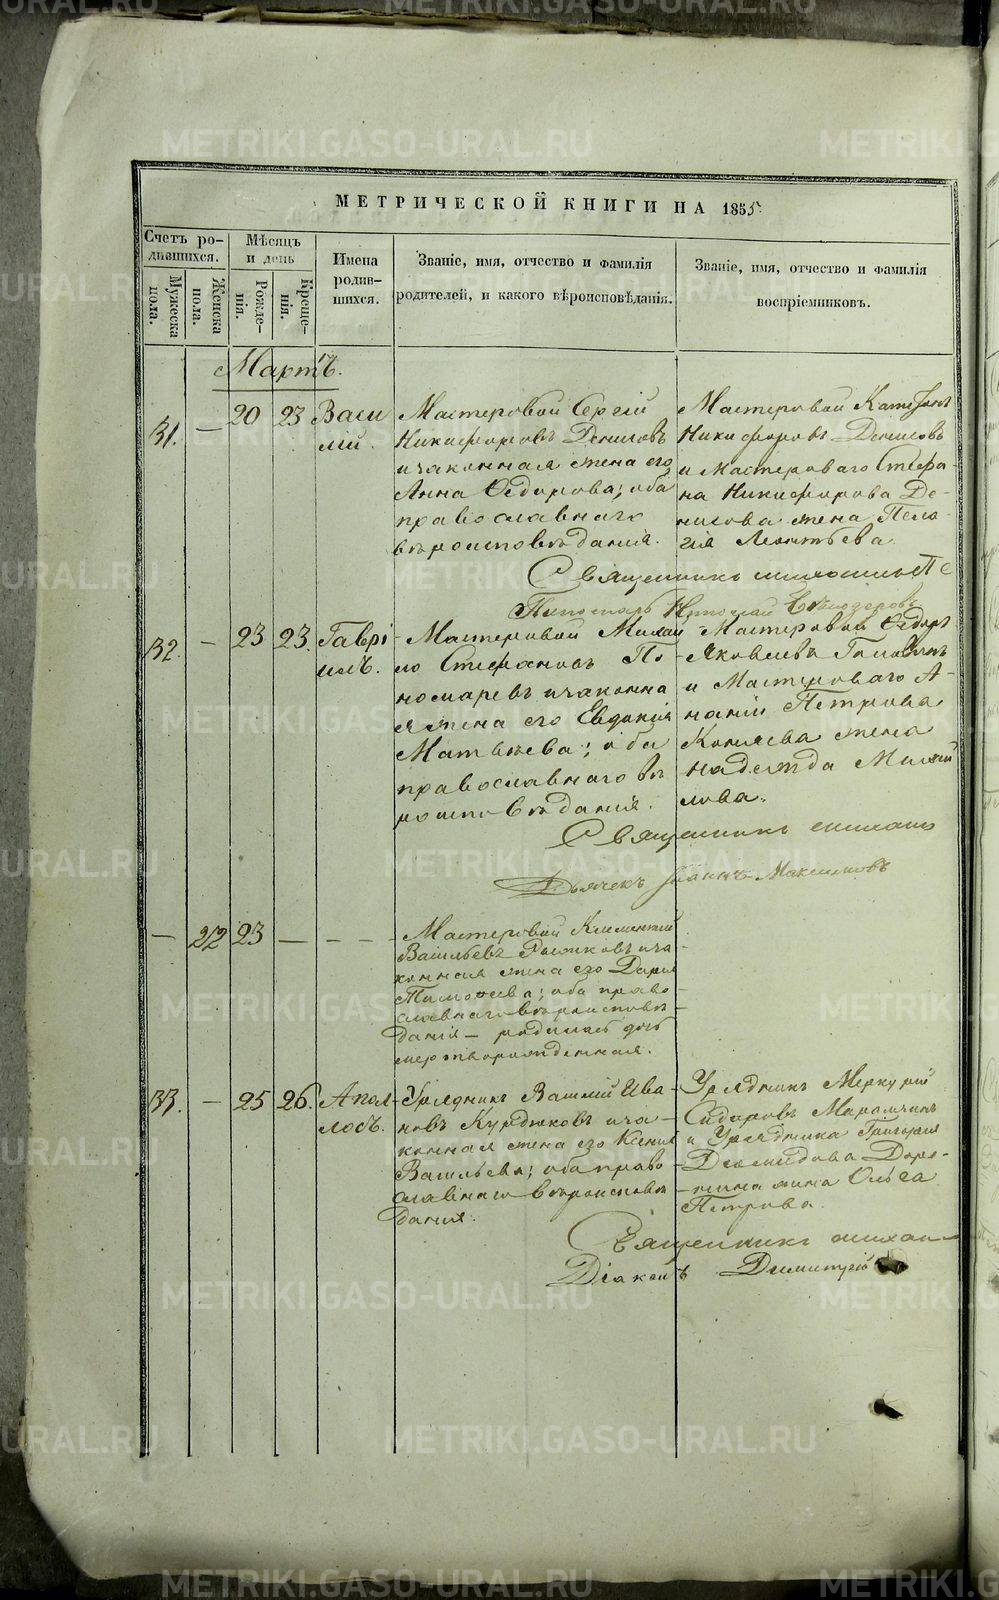 МЕТРИЧЕСКОЙ КНИГИ НА 1855
Счетъ ро-
дившихся.
Мужеска
пола.
Женска
пола.
Мѣсяцъ
и день
Рожде-
нія.
Креще-
нія.
Имена
родив-
шихся.
Званіе, имя, отчество и фамилія
родителей, и какого вѣроисповѣданія.
Званіе, имя, отчество и фамилія
воспріемниковъ.
Мартъ.
31. — 20 23 Васи
лій.
Мастеровой Сергій
Никифоровъ Денисовъ
и законная жена его
Анна Ѳедорова; оба
православнаго
вѣроисповѣданія.
Мастеровой
Никифоровъ Денисовъ
и Мастероваго Стефа-
на Никифорова Де-
нисова жена Пела-
гія Леонтьева.
Священникъ
Пономарь Николай
32. — 23 23. Гаврі
илъ.
Мастеровой Михаи
ло Стефановъ По
номаревъ и законна
я жена его Евдокія
Матвѣева; оба
православнаго вѣ
роисповѣданія.
Мастеровой Ѳедоръ
Яковлевъ
и Мастероваго А-
наніи Петрова
Копяева жена
Надежда Михай
лова.
Священникъ
Дьячекъ Максимовъ
— 22 23 — — — —
Мастеровой Климентій
Васильевъ и за
конная жена его Дарья
Тимоѳеева; оба право
славнаго вѣроисповѣ
данія — родилась дочь
мертворожденная.
33. — 25 26. Апол
лосъ.
Урядникъ Василій Ива
новъ Курдюковъ и за
конная жена его Ксенія
Васильева; оба право
славнаго вѣроисповѣ
данія.
Урядникъ Меркурій
Сидоровъ
и Урядника Григорія
Діомидова Доро-
нина жена Ольга
Петрова.
Священникъ
Діаконъ Димитрій
METRIKI.GASO-URAL.RU